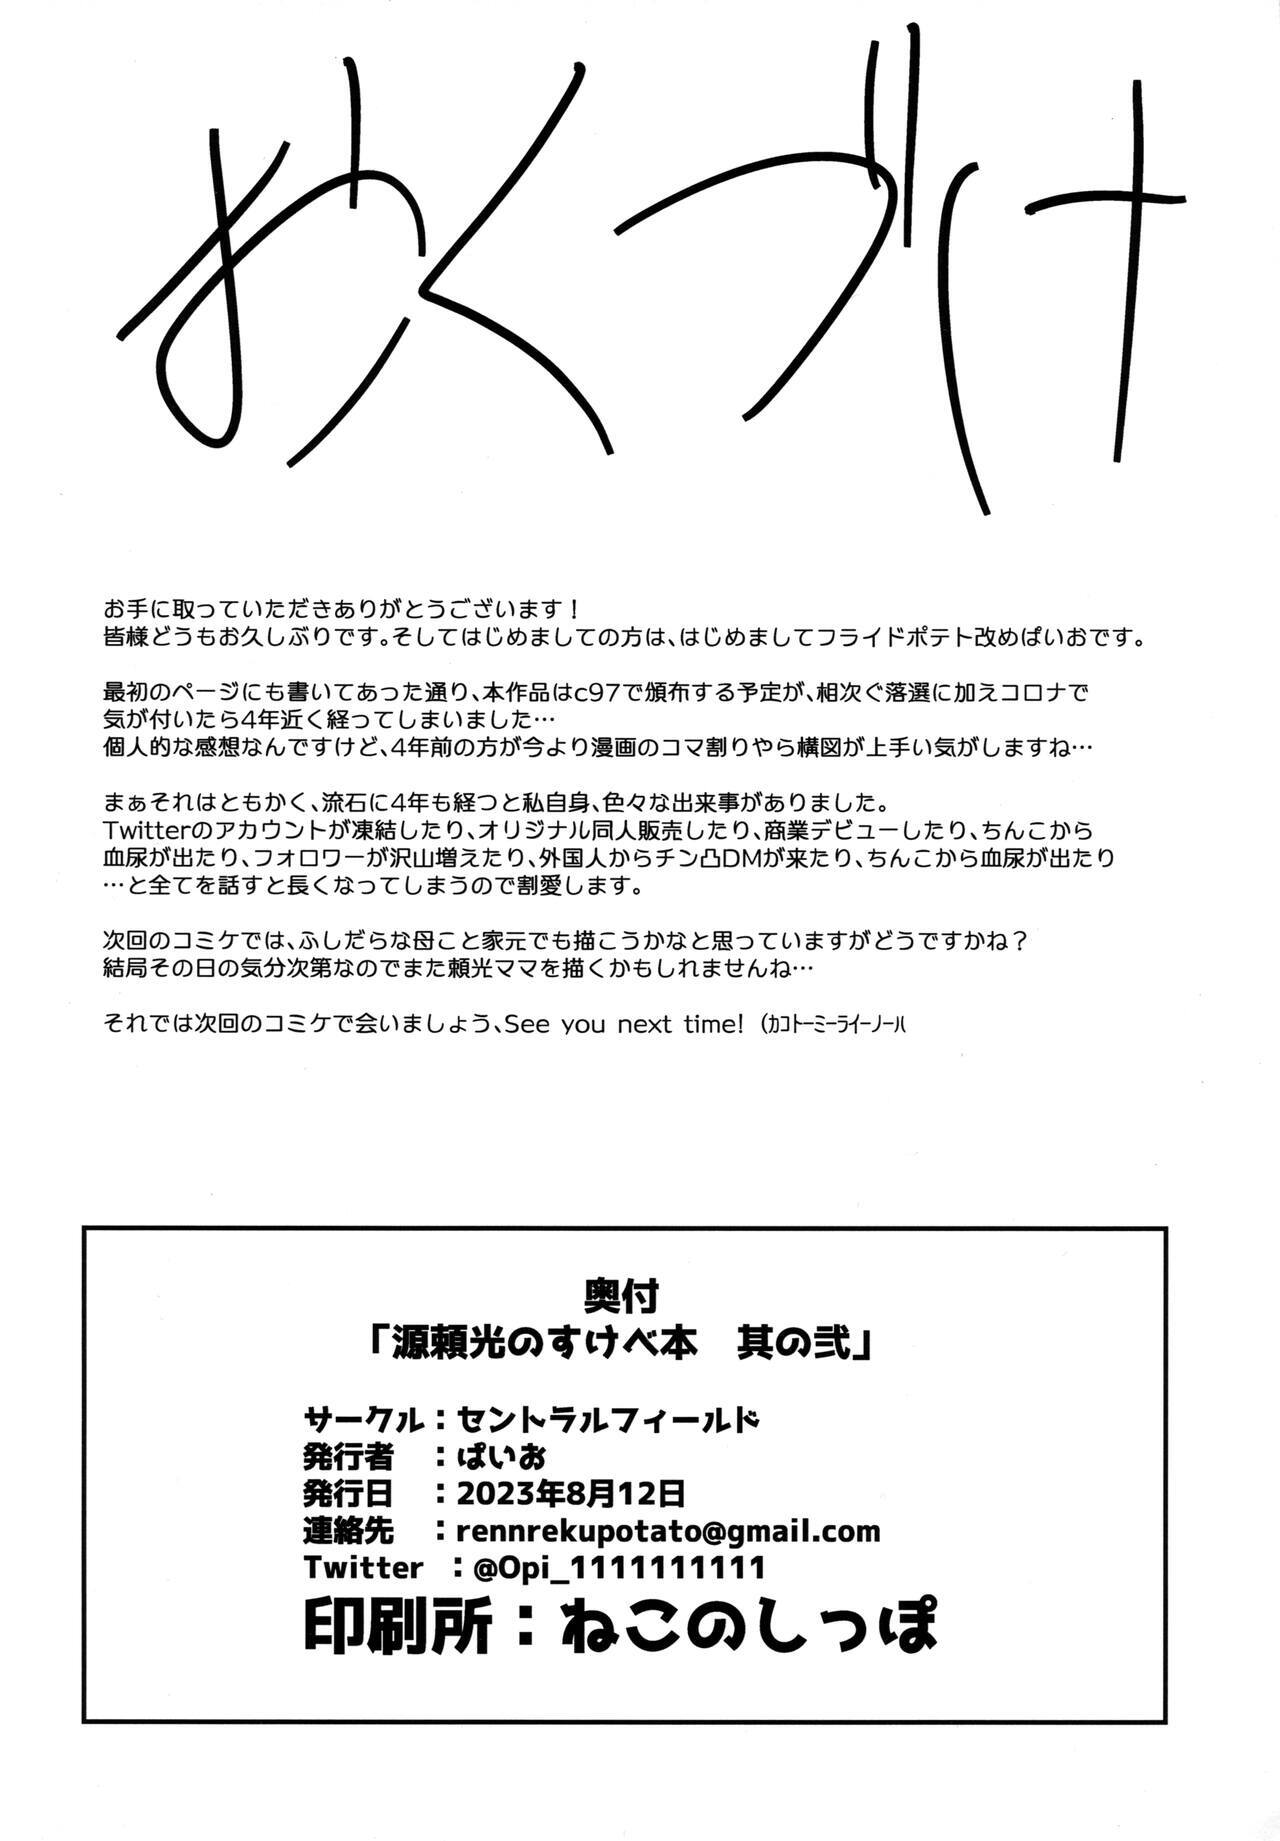 おくづけ
お手に取っていただきありがとうございます！
皆様どうもお久しぶりです。そしてはじめましての方は、はじめましてフライドポテト改めぱいおです。
最初のページにも書いてあった通り、本作品はc97で頒布する予定が、相次ぐ落選に加えコロナで
気が付いたら4年近く経ってしまいました…
個人的な感想なんですけど、4年前の方が今より漫画のコマ割りやら構図が上手い気がしますね…
まぁそれはともかく、流石に4年も経つと私自身、色々な出来事がありました。
Twitterのアカウントが凍結したり、オリジナル同人販売したり、商業デビューしたり、ちんこから
血尿が出たり、フォロワーが沢山増えたり、外国人からチン凸DMが来たり、ちんこから血尿が出たり
…と全てを話すと長くなってしまうので割愛します。
次回のコミケでは、ふしだらな母こと家元でも描こうかなと思っていますがどうですかね？
結局その日の気分次第なのでまた頼光ママを描くかもしれませんね…
それでは次回のコミケで会いましょう、See you next time! （ｶｺﾄｰﾐｰﾗｲｰﾉｰﾙ
奥付
「源頼光のすけべ本　其の弐」
サークル：セントラルフィールド
発行者　：ぱいお
発行日　：2023年8月12日
連絡先　：rennrekupotato@gmail.com
Twitter　：@Opi_1111111111
印刷所：ねこのしっぽ